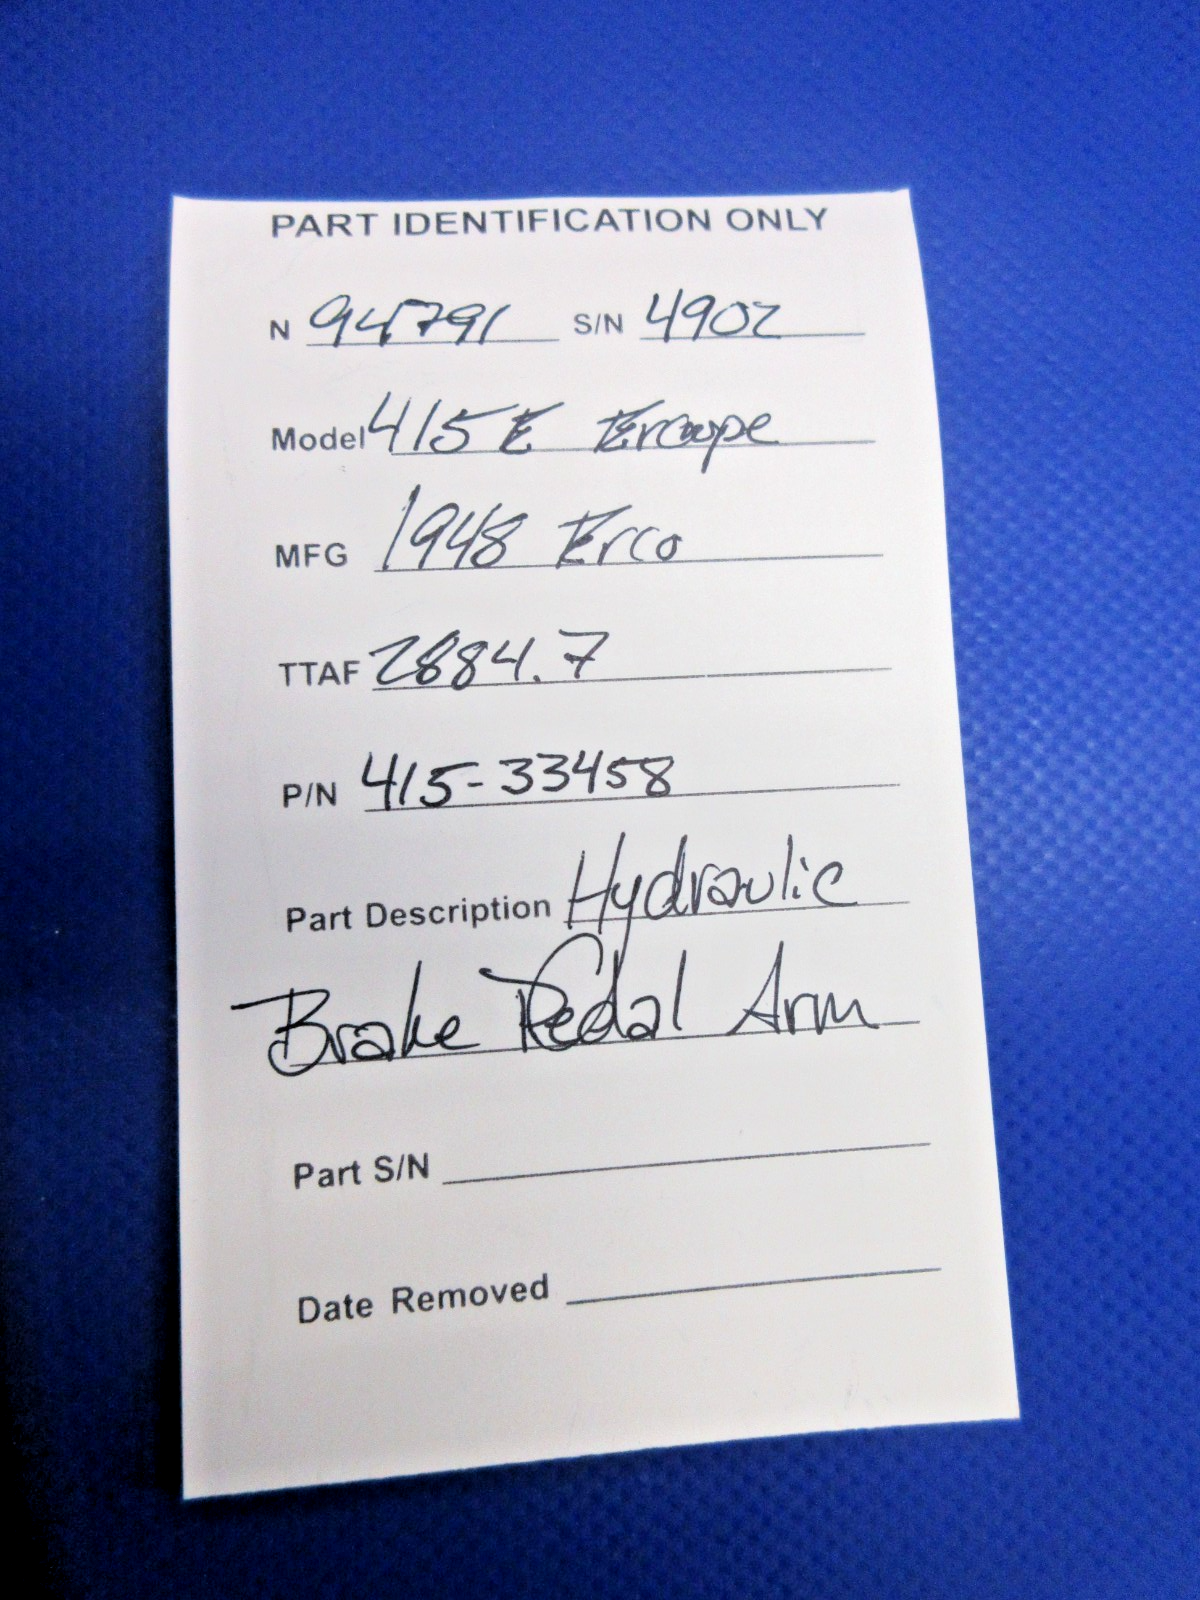 PART IDENTIFICATION ONLY
N 94791 S/N 4902
Model 415E Ercoupe
MFG 1948 Erco
TTAF 2884.7
P/N 415-33458
Part Description Hydraulic
Brake Pedal Arm
Part S/N
Date Removed